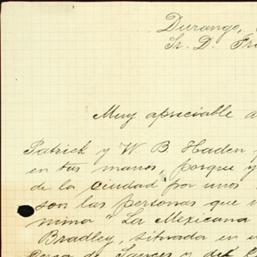 Durango,
Sr. D.
Muy apreciable a
Patrick y W. B Haden
en tus manos, porque y
de la ciudad por unos
son las personas que
mina "La Mexicana
Bradley, situada en